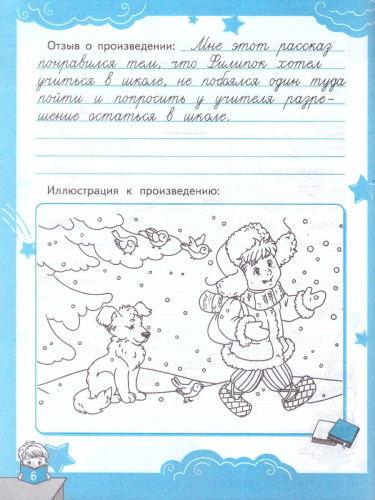 Отзыв о произведении: Мне этот рассказ
понравился тем, что Филипок хотел
учиться в школе, не побоялся один туда
пойти и попросить у учителя разре-
шение остаться в школе.
Иллюстрация к произведению:
6